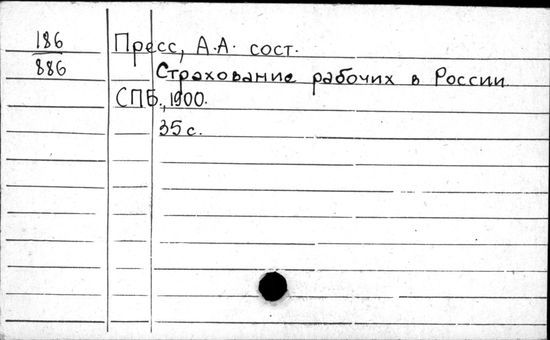 186
886
Пресс, А.А. сост.
Страхование рабочих в России
СПБ., 1900.
35 с.